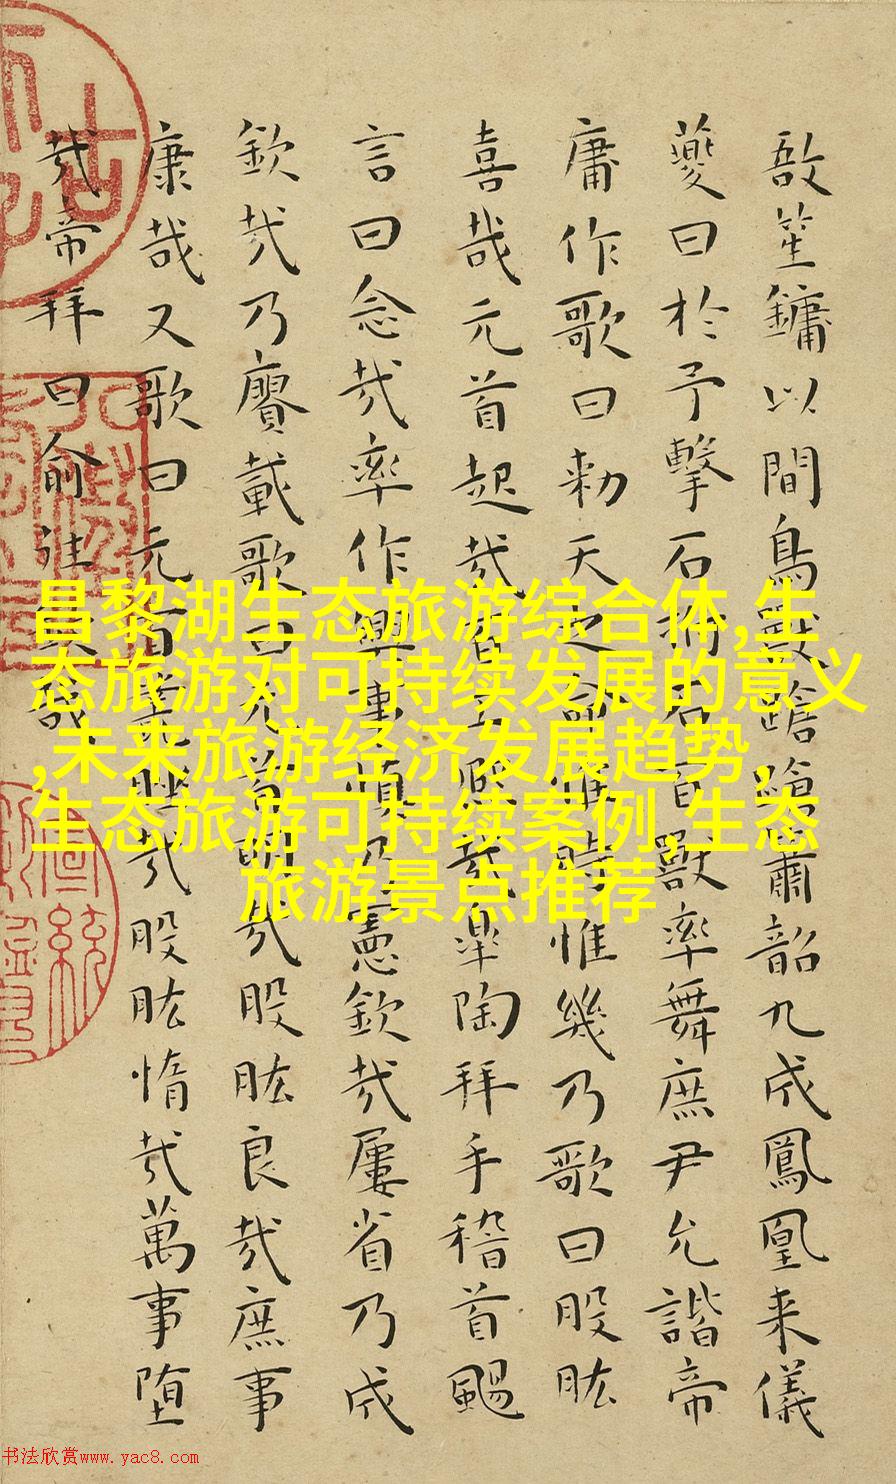 敔笙鏞以間鳥獸蹌蹌簫韶九成鳳凰来儀
夔曰於予擊石拊石百獸率舞庶尹允諧帝
庸作歌曰勑天之命惟時惟幾乃歌曰股肱
喜哉元首起哉百工熙哉皋陶拜手稽首颺
言曰念哉率作興事慎乃憲欽哉屢省乃成
欽哉乃賡載歌曰元首明哉股肱良哉庶事
康哉又歌曰元首叢脞哉股肱惰哉萬事堕
哉帝拜曰俞往欽哉
昌黎湖生态旅游综合体,生
态旅游对可持续发展的意义
,未来旅游经济发展趋势,
生态旅游可持续案例,生态
旅游景点推荐
书法欣赏www.yac8.com